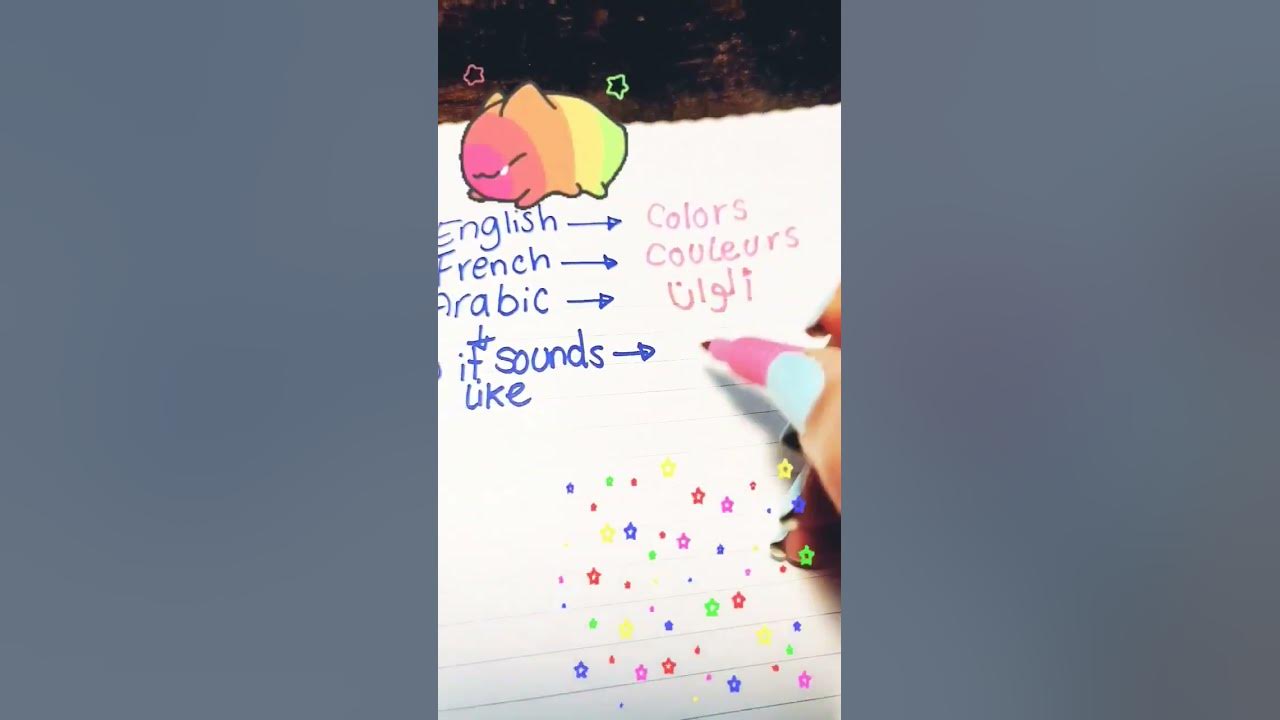 English → Colors
French → Couleurs
Arabic → ألوان
it sounds →
like